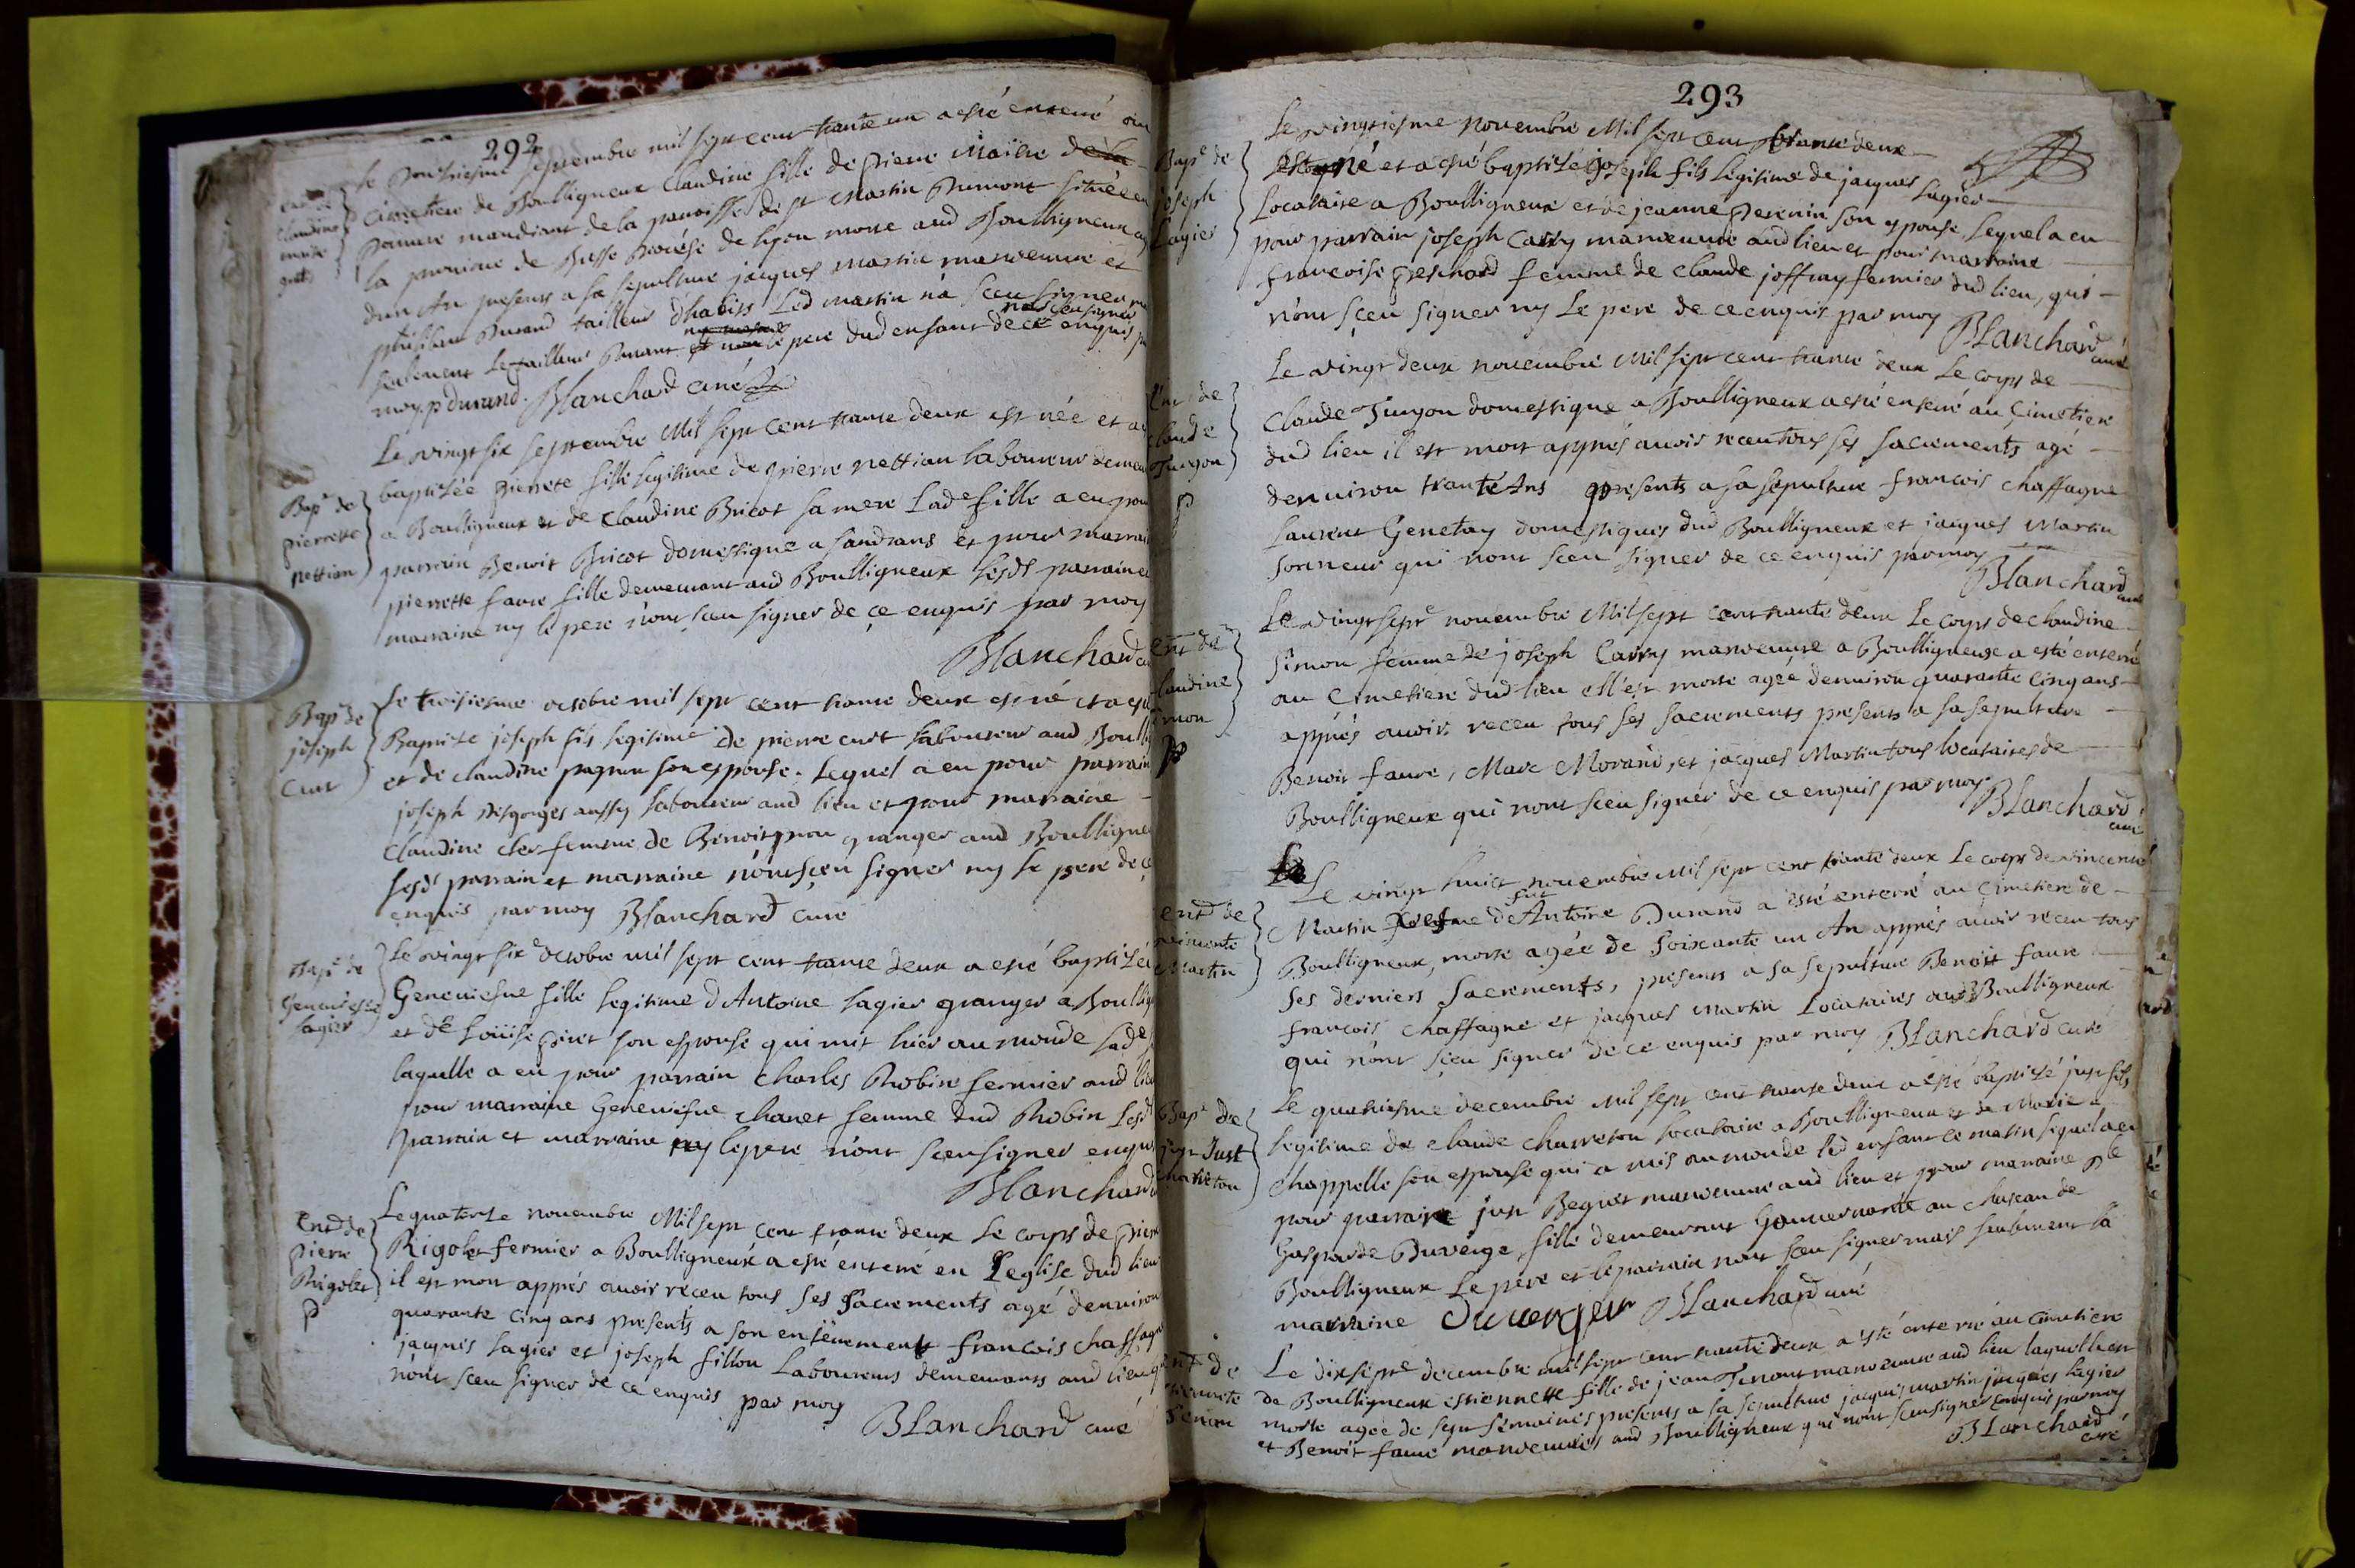 292
septembre mil sept cent trante un a esté enterré au
Cimetiere de Boulligneux Claudine fille de pierre Maître de la
mandiant de la paroisse de St Martin Dumont située en
la province de Bresse Diocése de lyon morte aud Boulligneux
dun An presents a sa sepulture jacques martin manoeuvre et
philibert Durand tailleur dhabits Led martin na sceu signer
nas sceu signer
seulement Le tailleur Durant le pere dud enfant de ce enquis
moy p durand. Blanchard curé
Le vingt six septembre Mil sept cent trante deux est née et a
Bap^e de
pierrette
nettian
baptisée pierrete fille legitime de pierre nettian laboureur
a Boulligneux et de Claudine Bricot sa mere Lad^e fille a eu pour
parrain Benoit Bricot domestique a sandrans et pour marrai
pierrette faure fille demeurant aud Boulligneux Lesd^s parrain
marraine ny le pere nont sceu signer de ce enquis par moy
Blanchard
Bap^e de
joseph
Curt
Le troisiesme octobre mil sept cent trante deux est né et a esté
Baptisé joseph fils legitime de pierre curt laboureur aud Boulli
et de claudine pagnon son espouse. Lequel a eu pour parrain
joseph Desgorges aussy laboureur aud lieu et pour marraine
Claudine cler femme de Benoit granger aud Boulligne
Lesd^s parrain et marraine nont sceu signer ny le pere de ce
enquis par moy Blanchard curé
Bap^e de
Geneviesve
Lagier
Le vingt six^e octobre mil sept cent trante deux a esté baptisée
Geneviesve fille legitime d'Antoine Lagier granger a Boullig
et de Loüise piret son espouse qui mit hier au monde Lad^e
laquelle a eu pour parrain Charles Robin fermier aud lieu
pour marraine Geneviesve chanet femme dud Robin Lesd^s
parrain et marraine ny le pere nont sceu signer enquis
Blanchard
Ent^t de
pierre
Rigolet
p
Le quatorze novembre Mil sept cent trante deux Le corps de pierre
Rigolet fermier a Boulligneux a esté enterré en Leglise dud lieu
il est mort appres avoir receu tous ses Sacrements agé denviron
quarante cinq ans presents a son enterrement francois chaffagne
jacques Lagier et joseph fillon Laboureurs demeurants aud lieu qui
nont sceu signer de ce enquis par moy
Blanchard curé
293
Bap^e de
joseph
Lagier
Le vingtiesme novembre Mil sept cent trante deux
est né et a esté baptisé joseph fils Legitime de jacques Lagier
Locataire a Boulligneux et de jeanne perrnin son espouse Lequel a eu
pour parrain joseph Carry manoeuvre aud lieu et pour marraine
francoise pechard femme de Claude joffray fermier dud lieu, qui
nont sceu signer ny Le pere de ce enquis par moy
Blanchard curé
Ent^t de
Claude
p
Le vingt deux novembre Mil sept cent trante deux Le corps de
Claude domestique a Boulligneux a esté enterré au Cimetiere
dud lieu il est mort apprés avoir receu tous ses sacrements agé
denviron trante Ans presents a sa sepulture francois chaffagne
Laurent Genetay domestiques dud Boulligneux et jacques Martin
sonneur qui nont sceu signer de ce enquis par moy
Blanchard curé
Ent^t de
Claudine
simon
p
Le vingt sept^e novembre Mil sept cent trante deux Le corps de claudine
simon femme de joseph Carry manoeuvre a Boulligneux a esté enterré
au Cimetiere dud lieu ell'est morte agée denviron quarante cinq ans
apprés avoir receu tous ses sacrements presents a sa sepulture
Benoit faure, Marc Morand, et jacques Martin tous locataires de
Boulligneux qui nont sceu signer de ce enquis par moy
Blanchard curé
ent^t de
vincente
Martin
Le vingt huict novembre Mil sept cent trante deux Le corps de vincente
Martin vesve de fut Antoine Durand a esté enterré au Cimetiere de
Boulligneux, morte agée de soixante un An apprés avoir receu tous
ses derniers Sacrements, presents a sa sepulture Benoit faure
francois chaffagne et jacques martin Locataires aud Boulligneux
qui nont sceu signer de ce enquis par moy Blanchard curé
Bap^e de
Just
Charreton
Le quatriesme decembre Mil sept cent trante deux a esté baptisé just fils
Legitime de claude charreton locataire a Boulligneux et de Marie
chappelle son espouse qui a mis au monde led enfant ce matin lequel a eu
pour parrain just Beguet manoeuvre aud lieu et pour marraine d^lle
Gasparde Duverge fille demeurant Gouvernante au chateau de
Boulligneux Le pere et le parrain nont sceu signer mais seulement la
marraine Duverger Blanchard curé
Ent^t de
estiennette
Tenon
Le dix sept^e decembre mil sept cent trante deux a esté enterré au Cimetiere
de Boulligneux estiennette fille de jean Tenon manoeuvre aud lieu laquelle est
morte agée de sept semaines presents a sa sepulture jacques martin jacques Lagier
et Benoit faure manoeuvres aud Boulligneux qui nont sceu signer enquis par moy
Blanchard curé